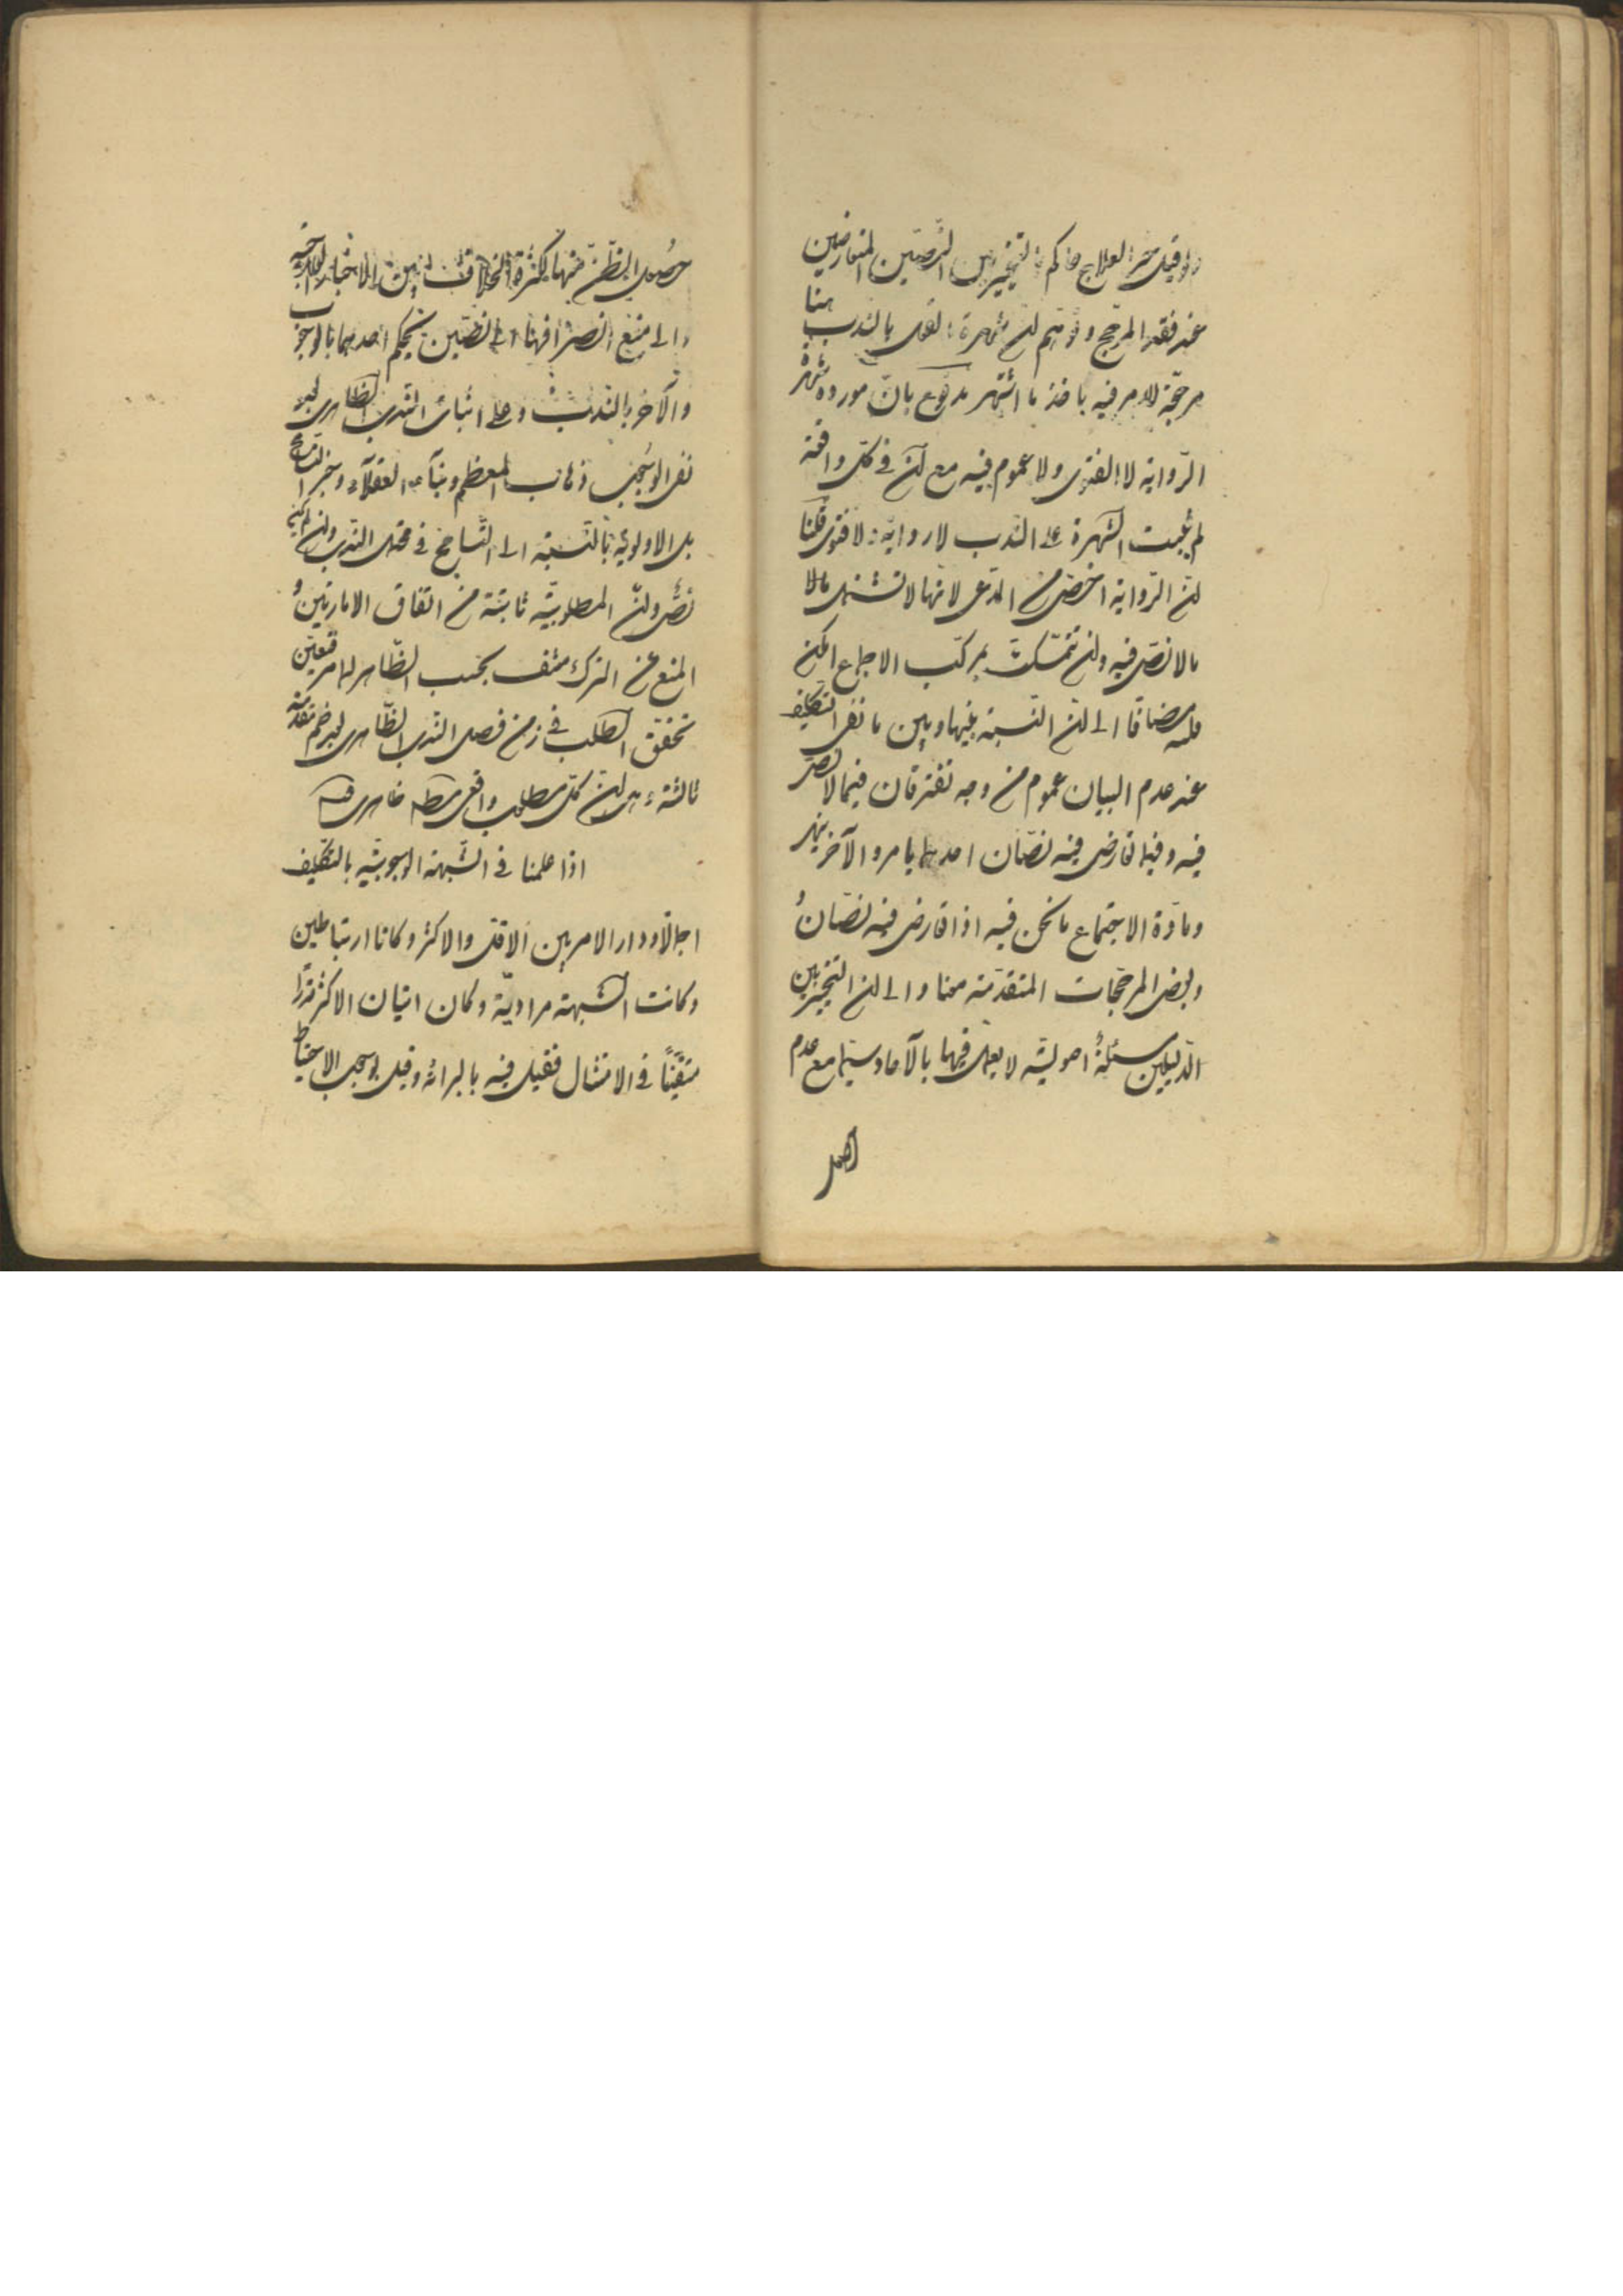 ولو قيل خبر العلاج حاكم بالتخيير بين النصّين المتعارضين
عند فقد المرجح وتوهم ان شهرة القول بالندب هنا
مرجّحة للامر فيه باخذ ما اشتهر مدفوع بان مورده شهرة
الرّواية لا الفتوى ولا عموم فيه مع ان فى كلّ واقعة
لم يثبت الشهرة على النّدب لا رواية ولا فتوى قلنا
انّ الرّواية اخصّ من المدّعى لانها لا تشتمل ما لا
ما لا نصّ فيه وان تمسّكت بمركّب الاجماع امكن
قلبه مضافا الى انّ النّسبة بينها وبين ما نفى التكليف
عند عدم البيان عموم من وجه تفترقان فيما لا نصّ
فيه وفيما تعارض فيه نصّان احدهما يامر والآخر ينهى
ومادّة الاجتماع ما نحن فيه اذا تعارض فيه نصّان
وبعض المرجّحات المتقدّمة معنا والى ان التخيير بين
الدّليلين مسئلة اصوليّة لا يعمل فيها بالآحاد سيّما مع عدم
حصول الظّنّ منها لكثرة الخلاف بين الاخبار العلاجيّة
والى منع انصرافها الى نصّين يحكم احدهما بالوجوب
والآخر بالندب وعلى اثبات النّدب الظاهرى بعد
نفى الوجوب ذهاب المعظم وبناء العقلاء وخبر التسامح
بل الاولويّة بالنّسبة الى التّسامح فى محتمل النّدب وان لم يكن
نصّ وانّ المطلوبيّة ثابتة من اتّفاق الامارتين و
المنع من الترك منتف بحسب الظّاهر للامر فتعيّن
تحقق الطّلب فى زمن فصل النّدب الظّاهرى بعد ضم مقدمة
ثالثة وهى ان كلّ مطلوب واقعى مطلوب ظاهرى
اذا علمنا فى الشّبهة الوجوبيّة بالتكليف
اجمالا ودار الامر بين الاقل والاكثر وكانا ارتباطيين
وكانت الشّبهة مراديّة وكان اتيان الاكثر قدرا
متيقّنا فى الامتثال فقيل فيه بالبرائة وقيل بوجوب الاحتياط